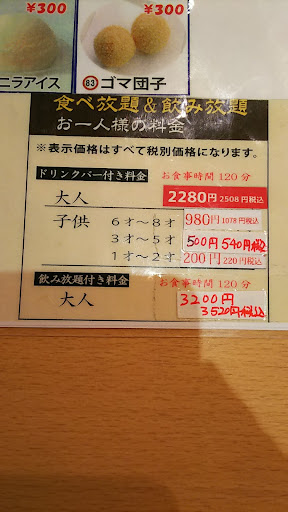 ¥300
¥300
ニラアイス
83 ゴマ団子
食べ放題&飲み放題
お一人様の料金
※表示価格はすべて税別価格になります。
ドリンクバー付き料金 お食事時間 120分
大人 2280円 2508円税込
子供 6才〜8才 980円 1078円税込
3才〜5才 500円 540円税込
1才〜2才 200円 220円税込
飲み放題付き料金 お食事時間 120分
大人 3200円
3520円税込